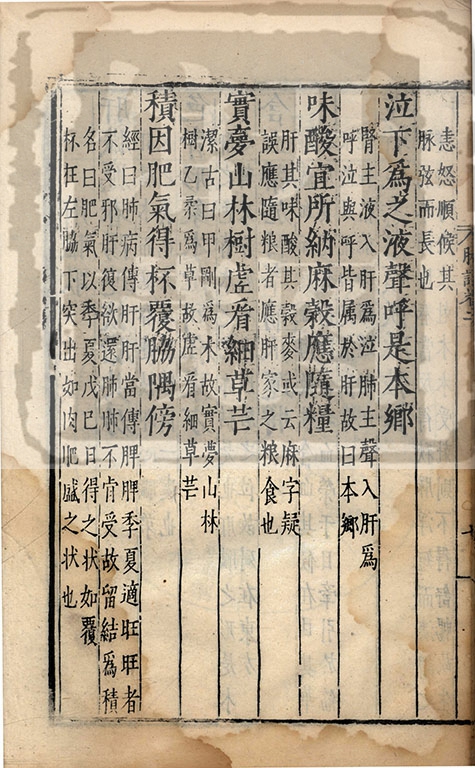 恚怒順候其
脉弦而長也
泣下爲之液聲呼是本鄉
腎主液入肝爲泣肺主聲入肝爲
呼泣與呼皆属於肝故曰本鄉
味酸宜所納麻穀應隨糧
肝其味酸其穀麥或云麻字疑
誤應隨粮者應肝家之粮食也
實夢山林樹虚看細草芒
潔古曰甲剛爲木故實夢山林
樹乙柔爲草故虚看細草芒
積因肥氣得杯覆脇隅傍
經曰肺病傳肝肝當傳脾脾季夏適旺旺者
不受邪肝復欲還肺肺不肯受故留結爲積
名曰肥氣以季夏戊巳日得之状如覆
杯在左脇下突出如肉肥盛之状也